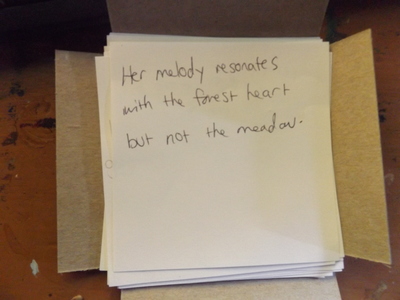 Her melody resonates
with the forest heart
but not the meadow.